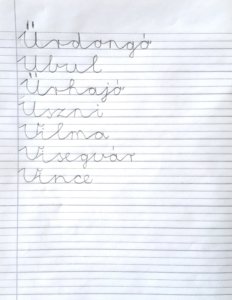 Űrdongó
Ubul
Űrhajó
Uszni
Vilma
Visegvár
Vince